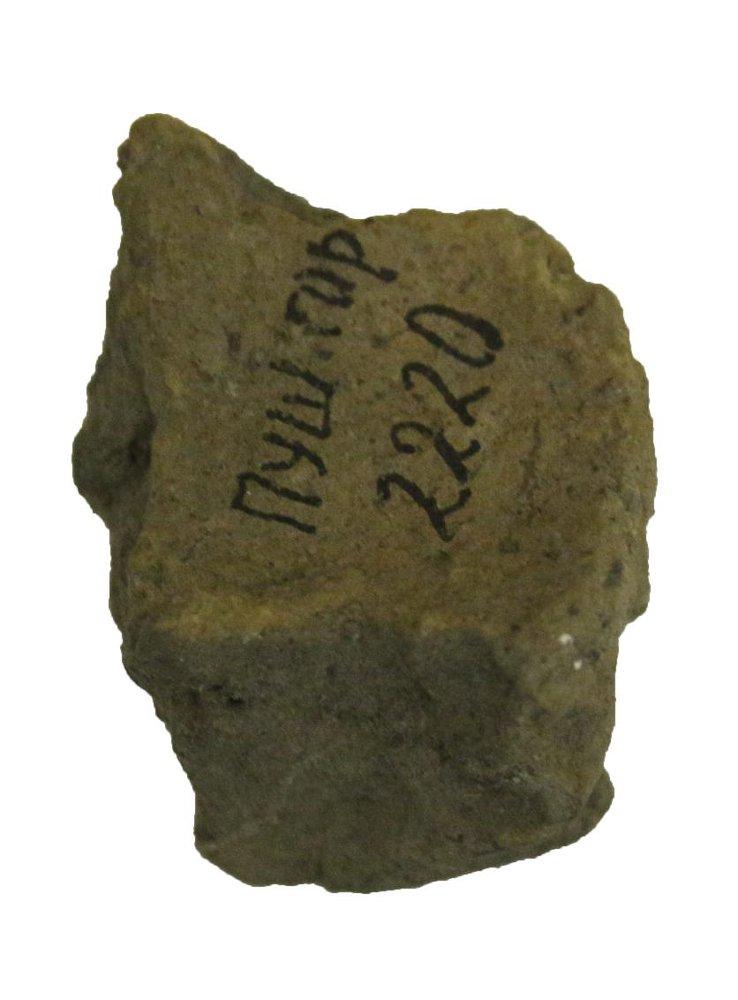 Пуш.гир
2220